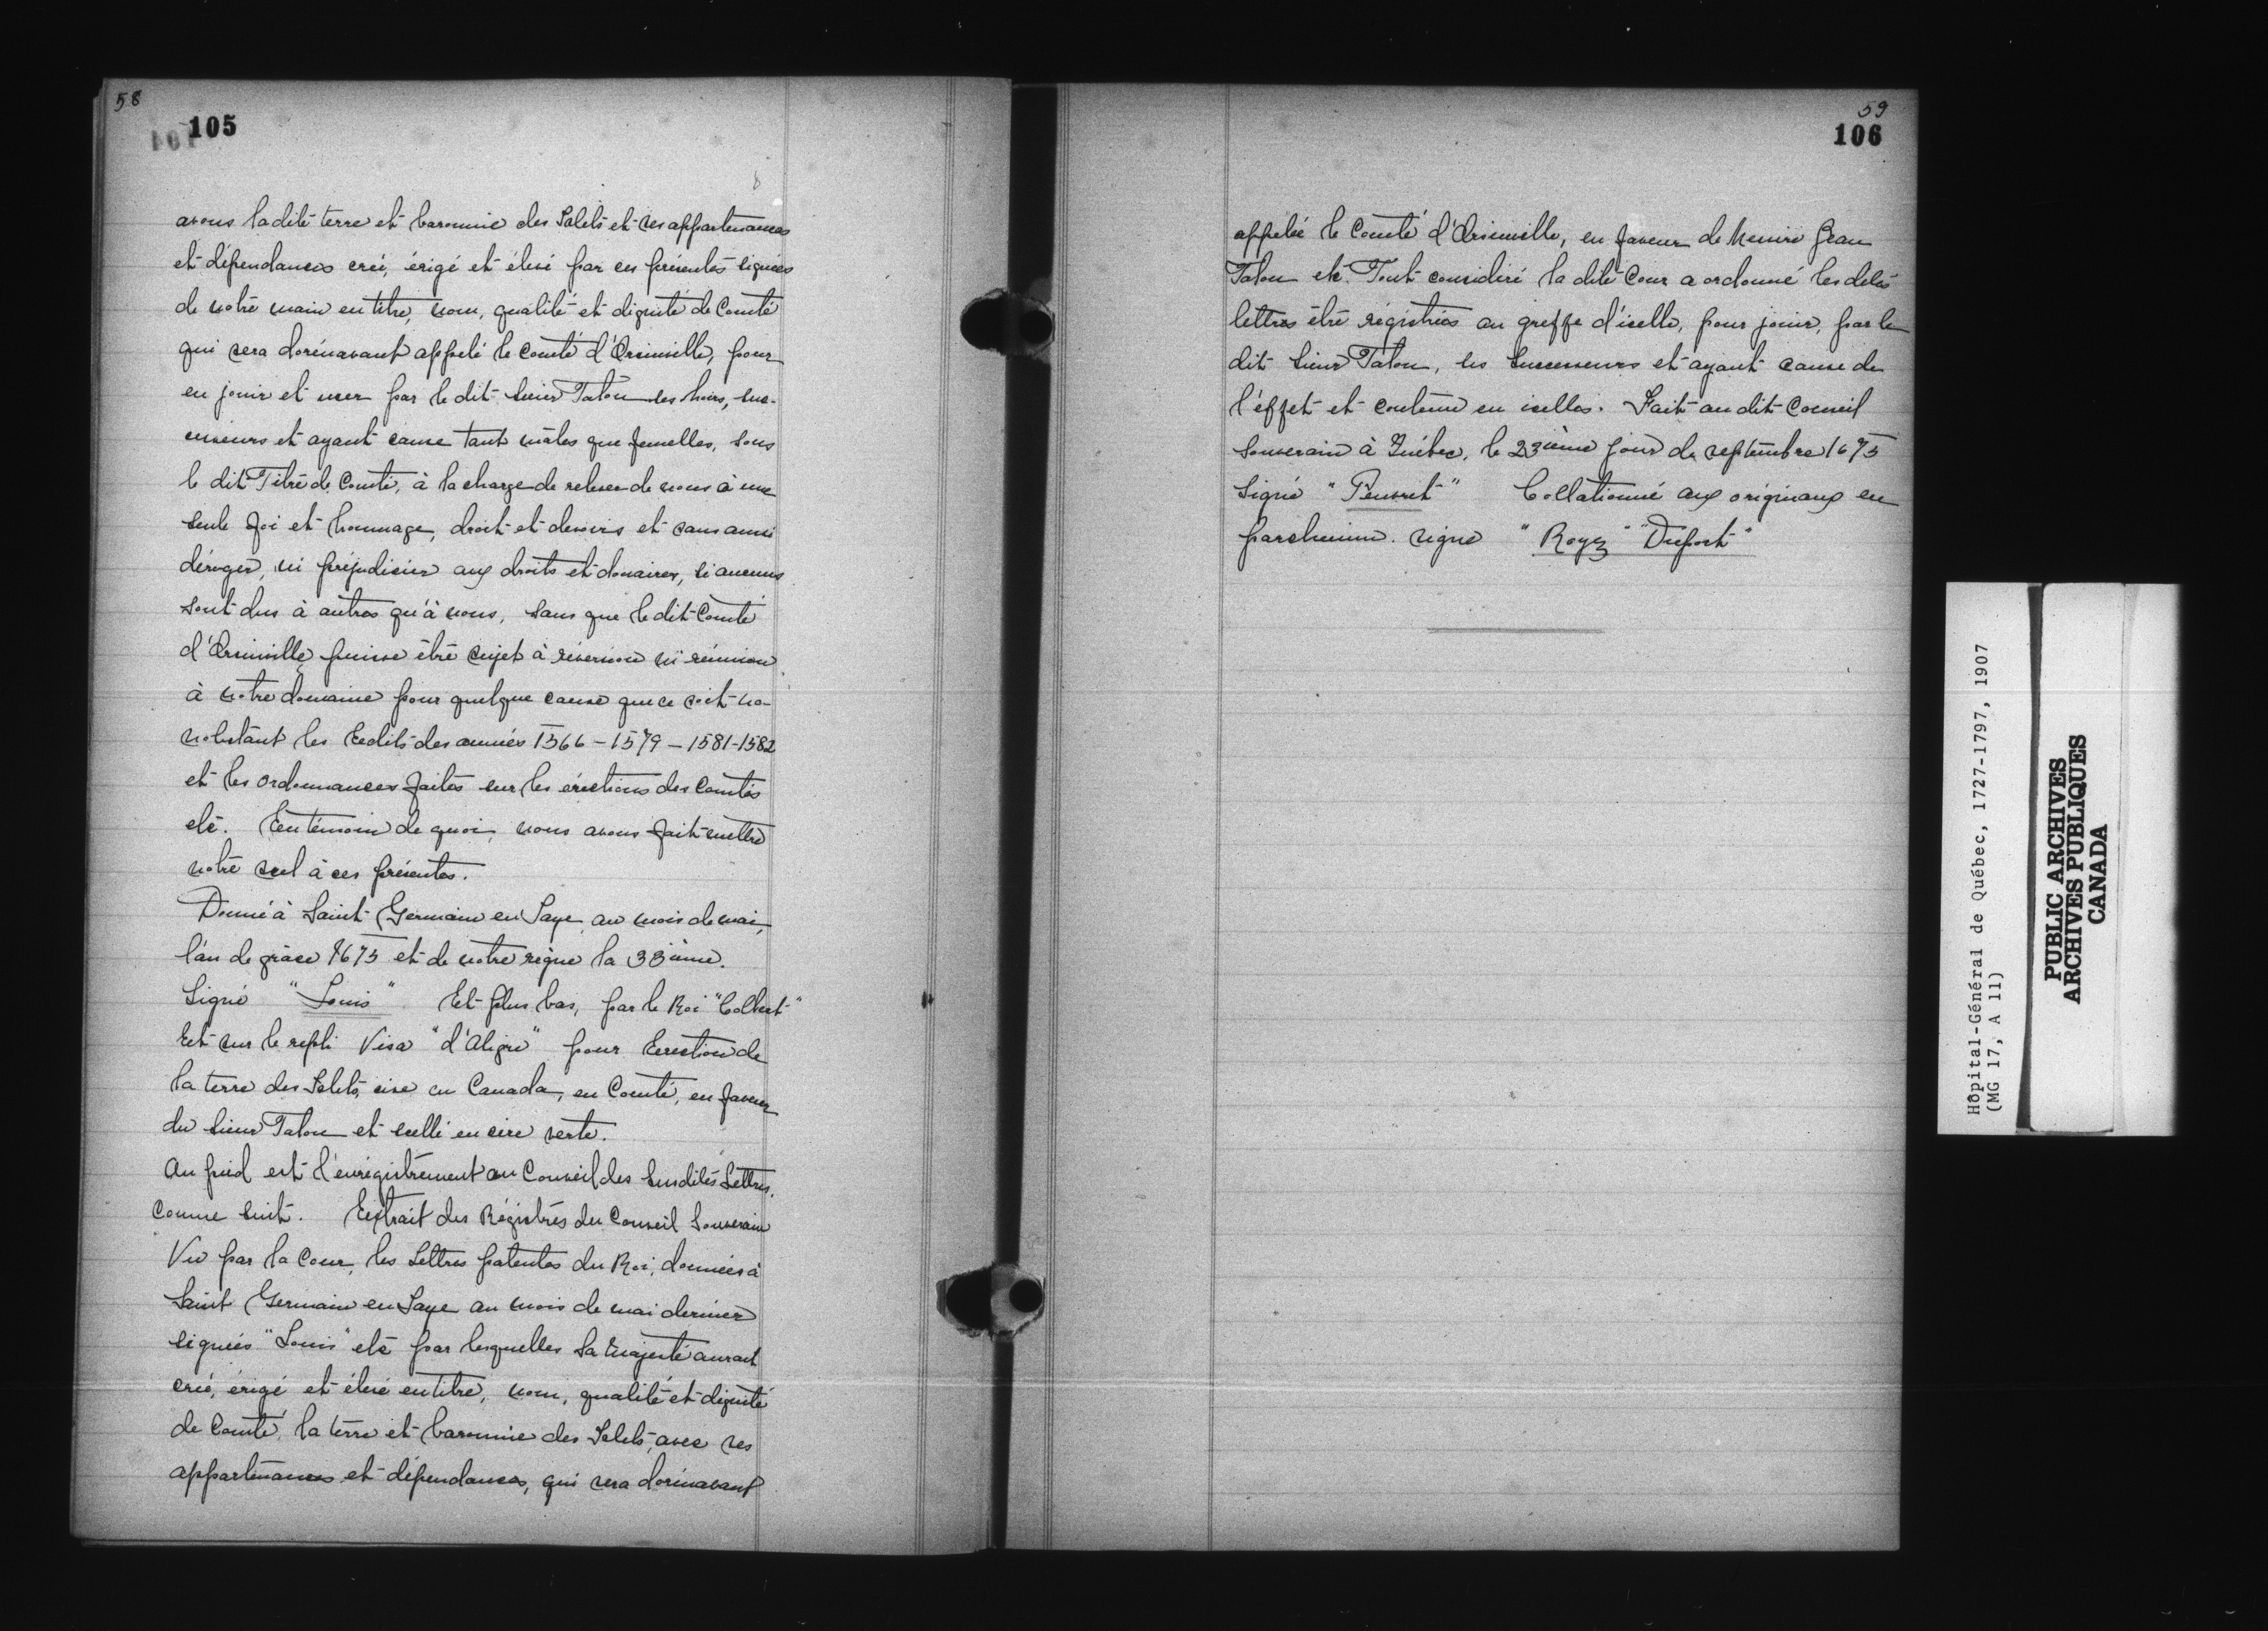 58
105
avons la dite terre et baronnie des Islets et ses appartenances
et dépendances créé, érigé et élevé par ces présentes signées
de notre main en titre, nom, qualité et dignité de Comté
qui sera dorénavant appelé le comté d'Orsinville, pour
en jouir et user par le dit Sieur Talon ses hoirs, suc-
cesseurs et ayant cause tant mâles que femelles, sous
le dit Titre de Comté, à la charge de relever de nous à une
seule foi et hommage, droit et devoirs et sans aussi
déroger, ni préjudicier aux droits et douaires, si aucuns
sont dus à autres qu'à nous, sans que le dit Comté
d'Orsinville puisse être sujet à réversion ni réunion
à notre domaine pour quelque cause que ce soit no-
nobstant les Eedits des années 1566 - 1579 - 1581 - 1582
et les ordonnances faites sur les érections des Comtés
etc. En témoin de quoi, nous avons fait mettre
notre scel à ces présentes.
Donné à Saint Germain en Laye au mois de mai,
l'an de grâce 1675 et de notre règne la 33ième.
Signé "Louis" Et plus bas, par le Roi "Colbert"
Et sur le repli Visa "d'Aligre" pour Erection de
la terre des Islets, sise en Canada, en Comté, en faveur
du Sieur Talon et scellé en cire verte.
Au pied est l'enrégistrement au Conseil des susdites Lettres,
comme suit. Extrait des Régistres du Conseil Souverain
Vu par la Cour, les Lettres patentes du Roi, données à
Saint Germain en Laye au mois de mai dernier
signées "Louis" etc par lesquelles Sa Majesté aurait
créé, érigé et élevé en titre, nom, qualité et dignité
de Comté, la terre et baronnie des Islets, avec ses
appartenances et dépendances, qui sera dorénavant
59
106
appelée le Comté d'Orsinville, en faveur de Messire Jean
Talon etc. Tout considéré la dite Cour a ordonné les dites
lettres être régistrées au greffe d'icelle, pour jouir, par le
dit Sieur Talon, ses Successeurs et ayant cause de
l'effet et contenu en icelles. Fait au dit Conseil
Souverain à Québec, le 23ième jour de septembre 1675
Signé "Peuvret" Collationné aux originaux en
parchemin. signé "Roger" "Duport"
Hôpital-Général de Québec, 1727-1797, 1907
(MG 17, A 11)
PUBLIC ARCHIVES
ARCHIVES PUBLIQUES
CANADA